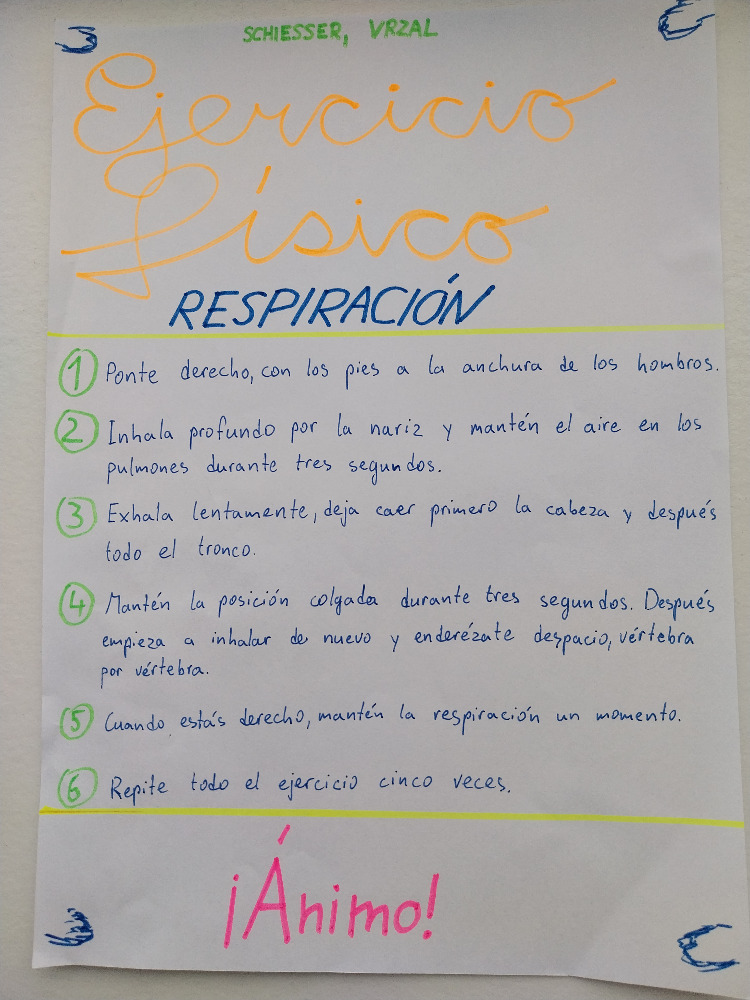 SCHIESSER, VRZAL
Ejercicio
físico
RESPIRACIÓN
1 Ponte derecho, con los pies a la anchura de los hombros.
2 Inhala profundo por la nariz y mantén el aire en los
pulmones durante tres segundos.
3 Exhala lentamente, deja caer primero la cabeza y después
todo el tronco.
4 Mantén la posición colgada durante tres segundos. Después
empieza a inhalar de nuevo y enderézate despacio, vértebra
por vértebra.
5 Cuando estás derecho, mantén la respiración un momento.
6 Repite todo el ejercicio cinco veces.
¡Ánimo!